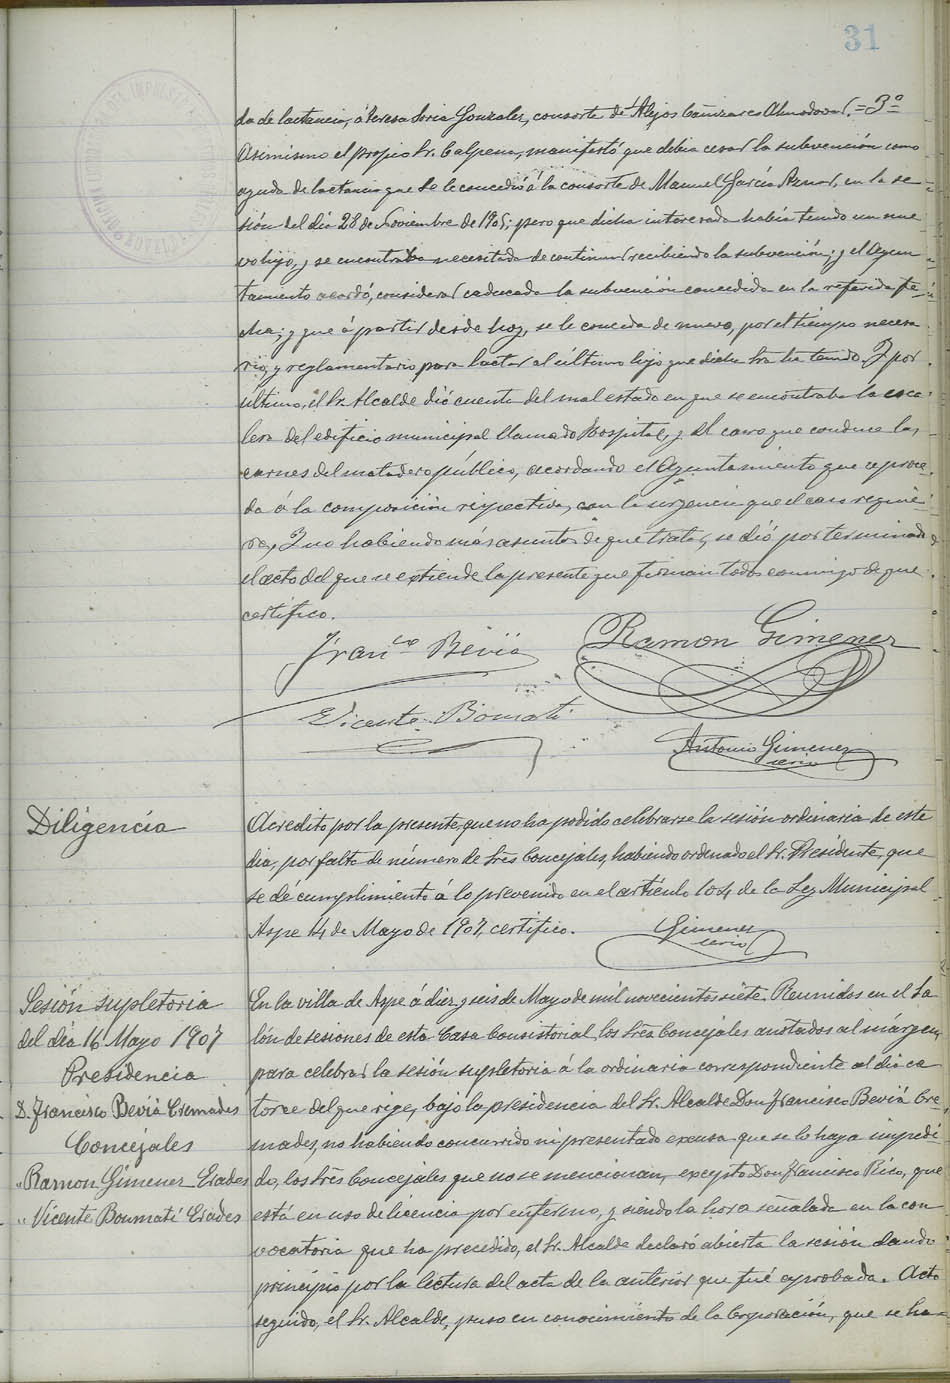 31
da de lactancia, á Teresa Soria Gonzales, consorte de Alejos Cañizares Almodovar. = 3º
Asimismo el propio Sr. Calpena, manifestó que debia cesar la subvención como
ayuda de lactancia que se le concedió á la consorte de Manuel García Aznar, en la se-
sión del dia 28 de Noviembre de 1905; pero que dicha interesada había tenido un nue
vo hijo, y se encontraba necesitada de continuar recibiendo la subvención; y el Ayun
tamiento acordó, considerar caducada la subvención concedida en la referida fe-
cha; y que á partir desde hoy, se le conceda de nuevo, por el tiempo necesa
rio, y reglamentario para lactar al último hijo que dicha Sra ha tenido. Y por
último, el Sr. Alcalde dió cuenta del mal estado en que se encontraba la esca
lera del edificio municipal llamado Hospital, y del carro que conduce las
carnes del matadero público, acordando el Ayuntamiento que se proce-
da á la composición respectiva, con la urgencia que el caso requie-
re. Y no habiendo más asuntos de que tratar, se dió por terminado
el acto del que se extiende la presente que firman todos conmigo de que
certifico.
Franco Beviá
Ramon Gimenez
Vicente Bomatí
Antonio Gimenez
serio
Diligencia
Acredito por la presente, que no ha podido celebrarse la sesión ordinaria de este
dia, por falta de número de Sres Concejales, habiendo ordenado el Sr. Presidente, que
se dé cumplimiento á lo prevenido en el artículo 104 de la Ley Municipal
Aspe 14 de Mayo de 1907, certifico.
Gimenez
serio
Sesión supletoria
del día 16 Mayo 1907
Presidencia
D. Francisco Beviá Cremades
Concejales
" Ramon Gimenez Erades
" Vicente Boumatí Erades
En la villa de Aspe á diez y seis de Mayo de mil novecientos siete. Reunidos en el Sa
lón de sesiones de esta Casa Consistorial, los Sres Concejales anotados al márgen,
para celebrar la sesión supletoria á la ordinaria correspondiente al dia ca
torce del que rige, bajo la presidencia del Sr. Alcalde Don Francisco Beviá Cre-
mades, no habiendo concurrido ni presentado excusa que se lo haya impedi-
do, los Sres Concejales que no se mencionan, excepto Don Francisco Rico, que
está en uso de licencia por enfermo, y siendo la hora señalada en la con
vocatoria que ha precedido, el Sr. Alcalde declaró abierta la sesión dando
principio por la lectura del acta de la anterior que fué aprobada. Acto
seguido, el Sr. Alcalde, puso en conocimiento de la Corporación, que se ha-